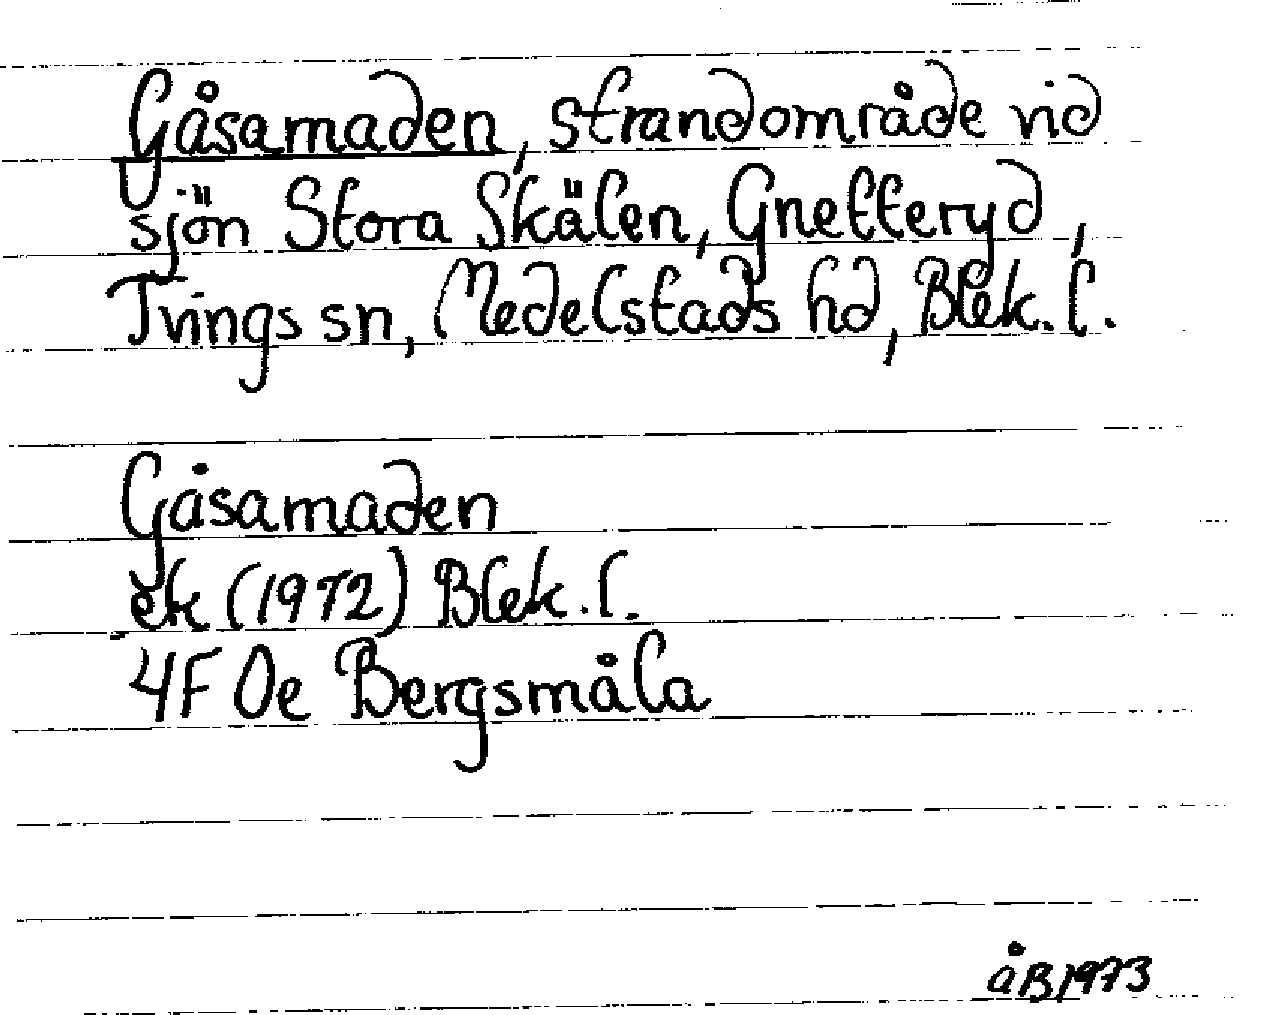 Gåsamaden, strandområde vid
sjön Stora Skälen, Gnetteryd,
Tvings sn, Medelstads hd, Blek. l.
Gåsamaden
ek (1972) Blek. l.
4F 0e Bergsmåla
åB 1973